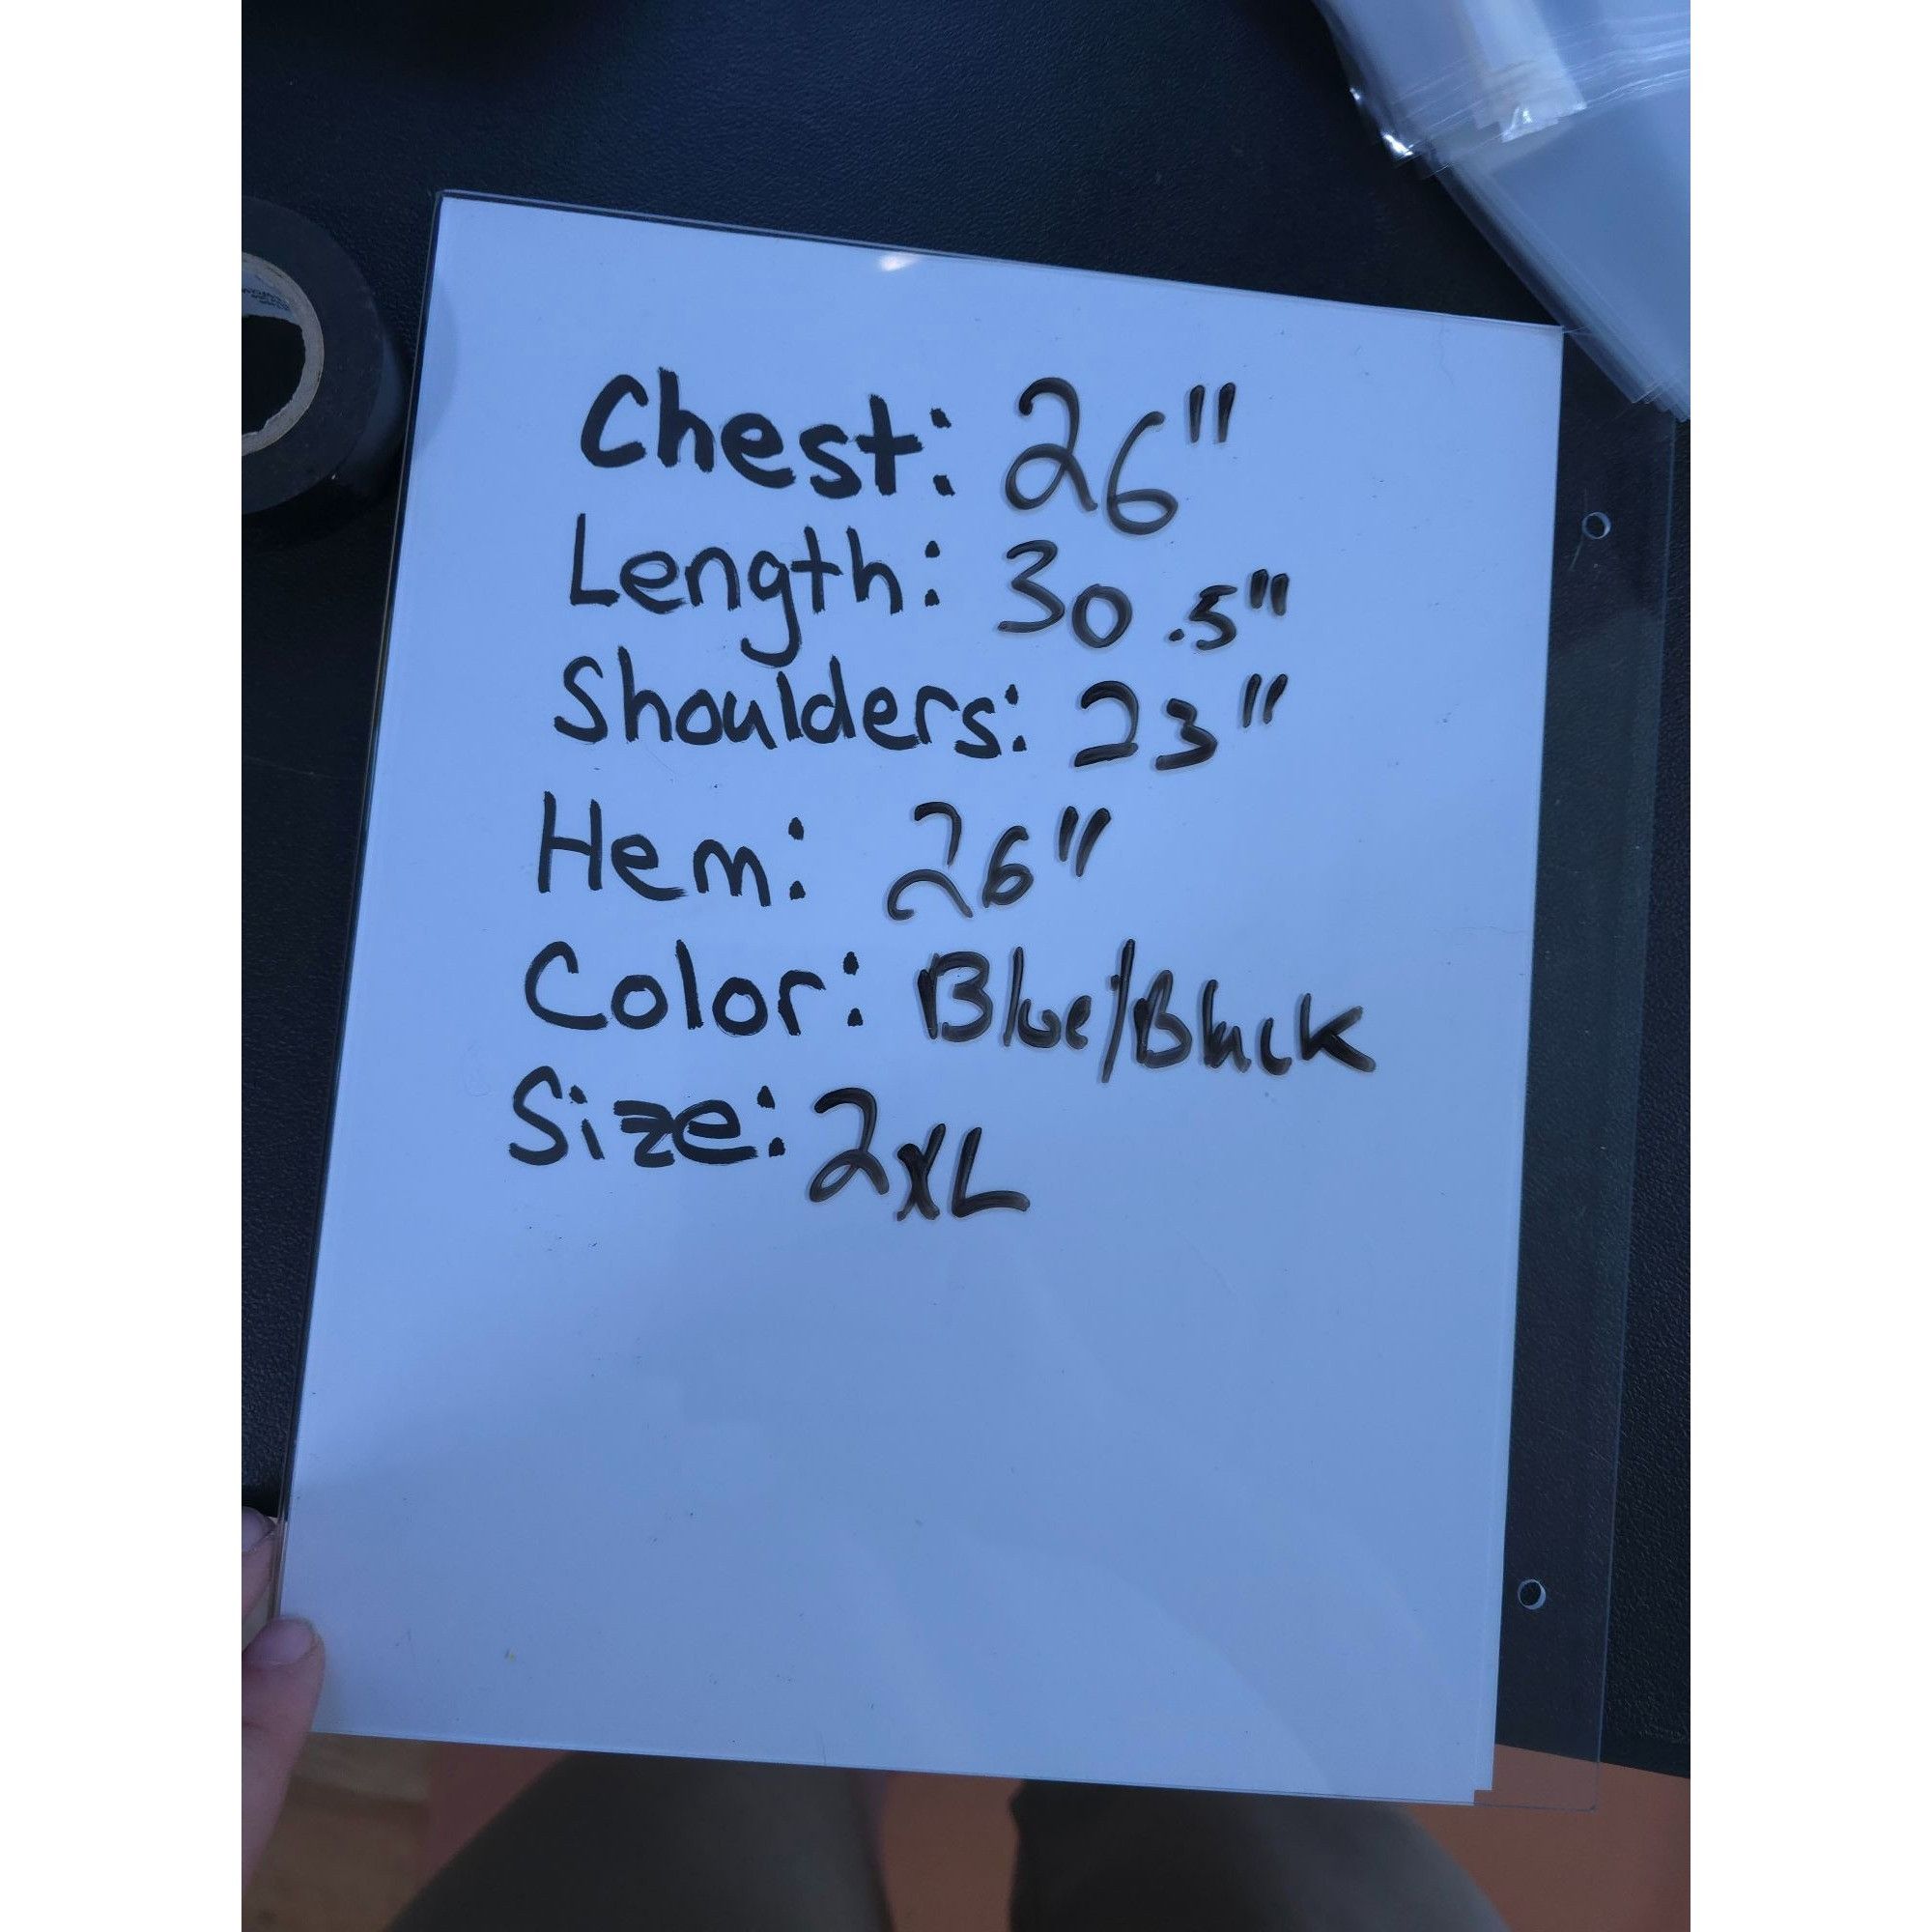 Chest: 26"
Length: 30.5"
Shoulders: 23"
Hem: 26"
Color: Blue/Black
Size: 2XL